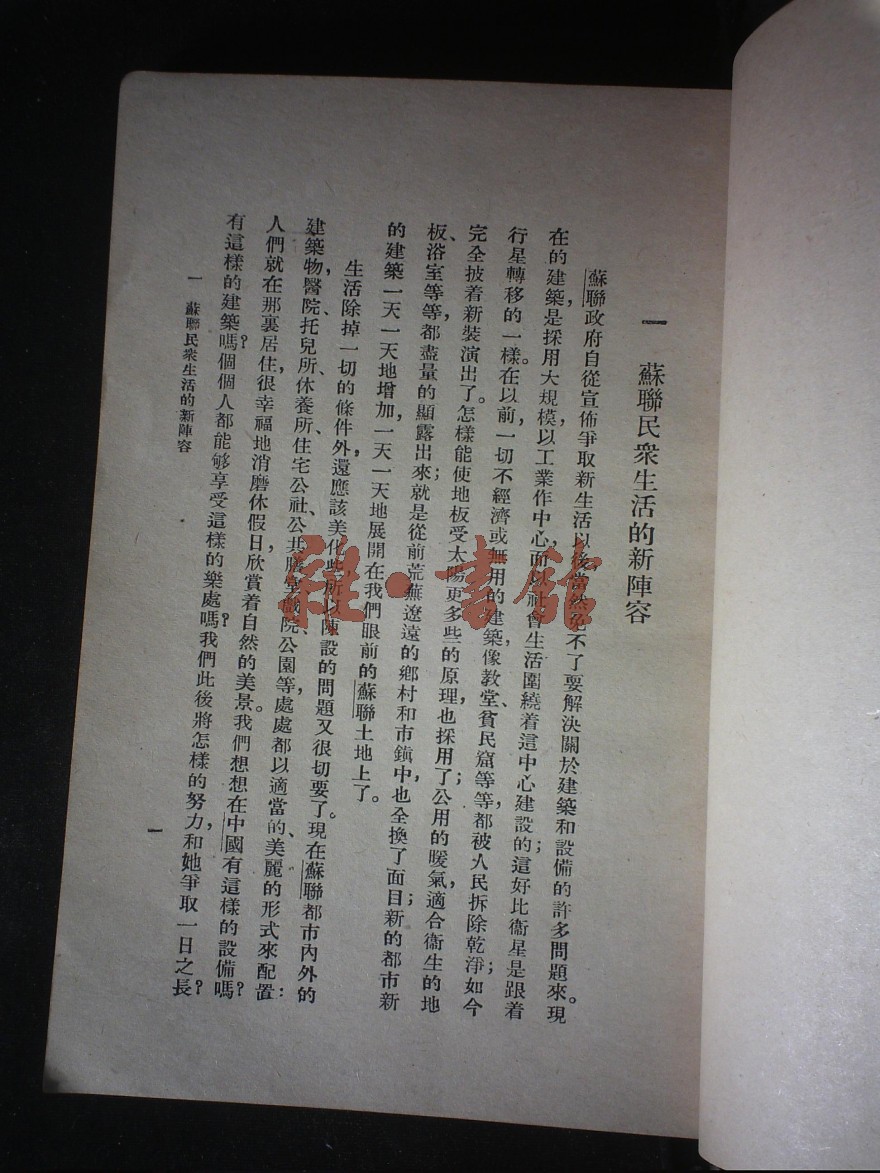 一　蘇聯民衆生活的新陣容
蘇聯政府自從宣佈爭取新生活以後當然免不了要解決關於建築和設備的許多問題來。現
在的建築，是採用大規模以工業作中心，而以社會生活圍繞着這中心建設的；這好比衞星是跟着
行星轉移的一樣。在以前一切不經濟或無用的建築，像教堂、貧民窟等等，都被人民拆除乾淨；如今
完全披着新裝演出了。怎樣能使地板受太陽更多些的原理，也採用了；公用的暖氣，適合衞生的地
板、浴室等等都盡量的顯露出來；就是從前荒蕪遼遠的鄉村和市鎮中，也全換了面目；新的都市新
的建築一天一天地增加，一天一天地展開在我們眼前的蘇聯土地上了。
生活除掉一切的條件外，還應該美化些，所以陳設的問題又很切要了。現在蘇聯都市內外的
建築物，醫院、托兒所、休養所、住宅公社、公共膳堂、戲院、公園等，處處都以適當的、美麗的形式來配置：
人們就在那裏居住，很幸福地消磨休假日，欣賞着自然的美景。我們想想在中國有這樣的設備嗎？
有這樣的建築嗎？個個人都能够享受這樣的樂處嗎？我們此後將怎樣的努力，和她爭取一日之長？
一　蘇聯民衆生活的新陣容
一
雜·書館